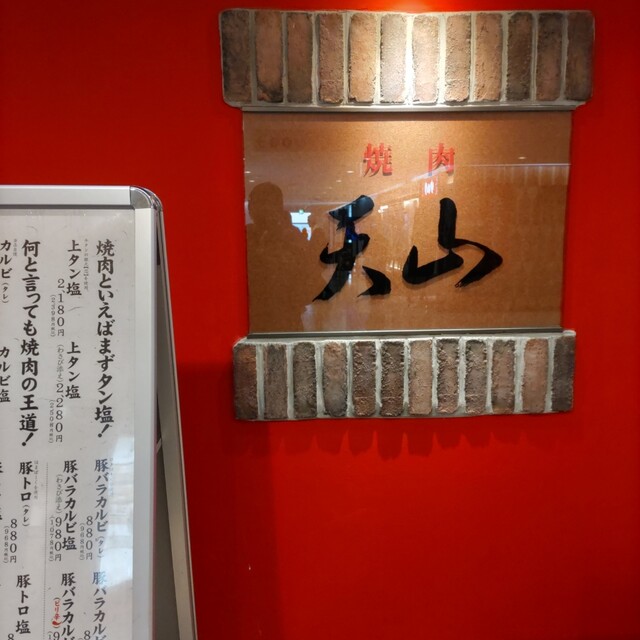 焼肉
天山
焼肉といえばまずタン塩!
上タン塩
2,180円
上タン塩
(わさび添え)
2,280円
豚バラカルビ(タレ)
880円
豚バラカルビ塩
(わさび添え)
980円
豚バラカルビ
豚バラカルビ
(ピリ辛)
何と言っても焼肉の王道!
カルビ(タレ)
カルビ
豚トロ(タレ)
880円
豚トロ塩